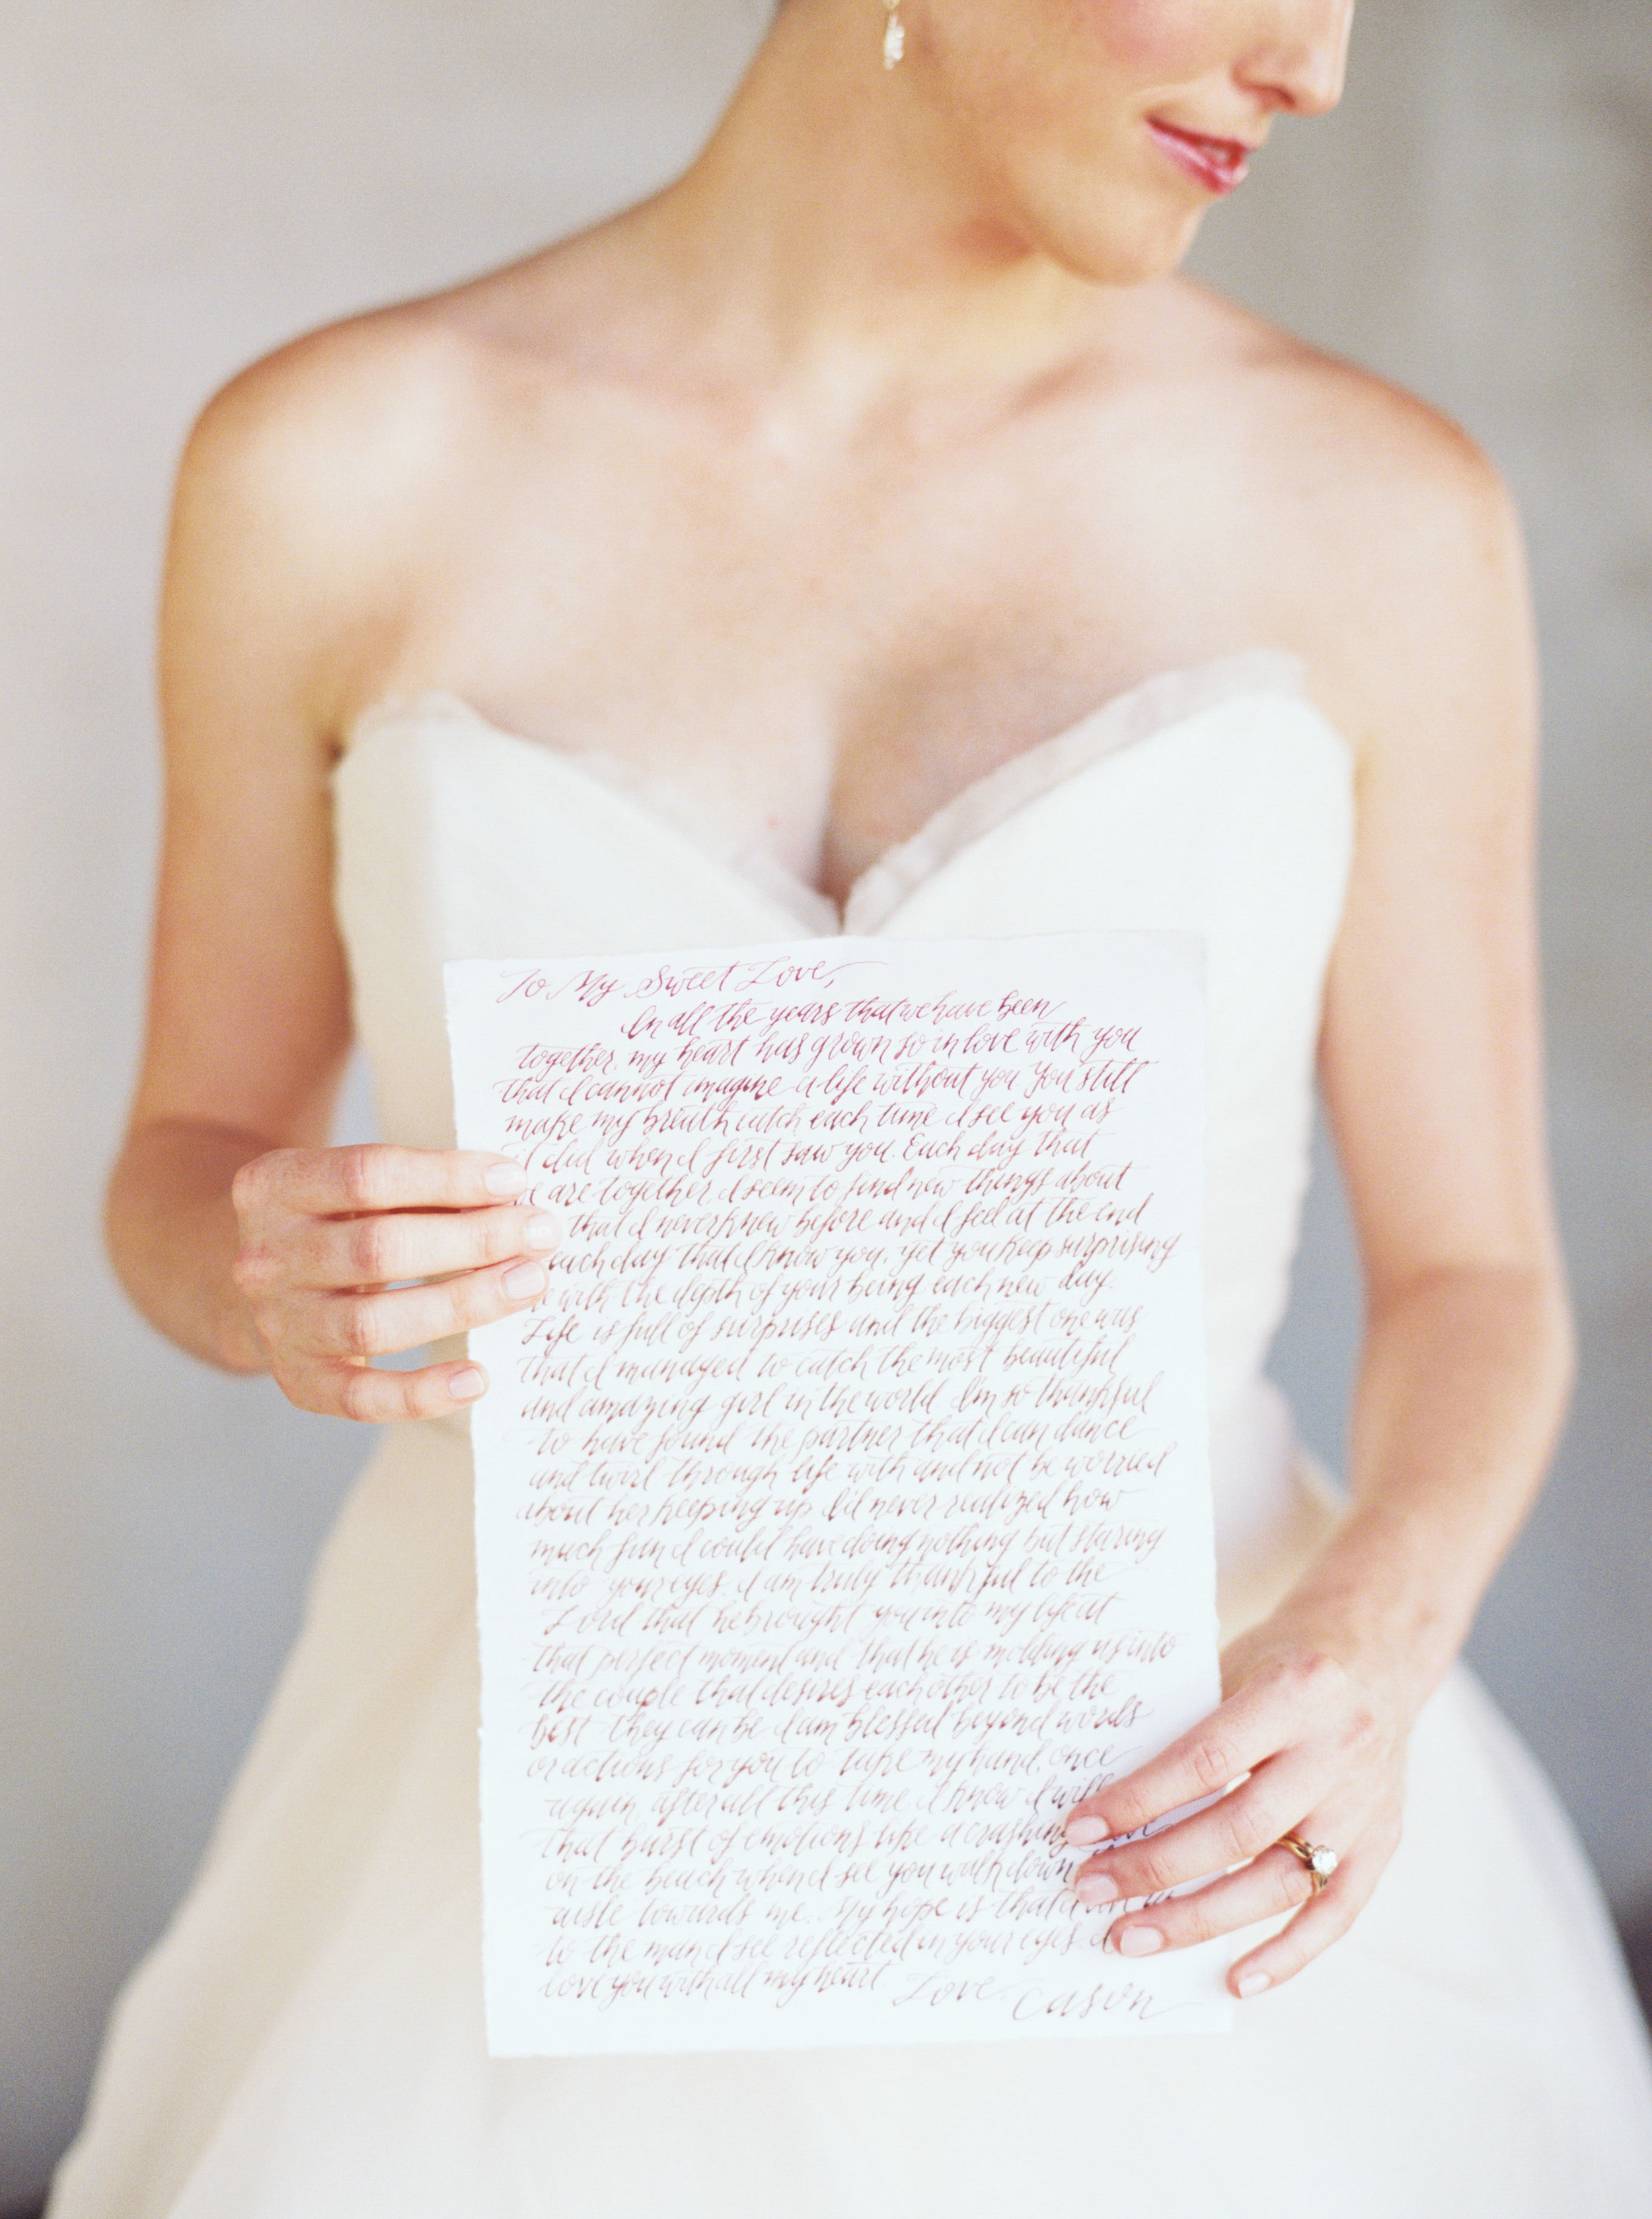 To My Sweet Love,
In all the years that we have been
together, my heart has grown so in love with you
that I cannot imagine a life without you. You still
make my breath catch each time I see you as
it did when I first saw you. Each day that
we are together I seem to find new things about
that I never knew before and I feel at the end
each day that I know you, yet you keep surprising
with the depth of your being each new day.
Life is full of surprises and the biggest one was
that I managed to catch the most beautiful
and amazing girl in the world. I'm so thankful
to have found the partner that I can dance
and twirl through life with and not be worried
about her keeping up. I'd never realized how
much fun I could have doing nothing but staring
into your eyes. I am truly thankful to the
Lord that he brought you into my life at
that perfect moment and that he is molding us into
the couple that desires each other to be the
best they can be. I am blessed beyond words
or actions for you to take my hand, once
again, after all this time. I know I will
that burst of emotions like a crashing
on the beach when I see you walk down
aisle towards me. My hope is that
to the man I see reflected in your eyes. I
love you with all my heart. Love
Cason